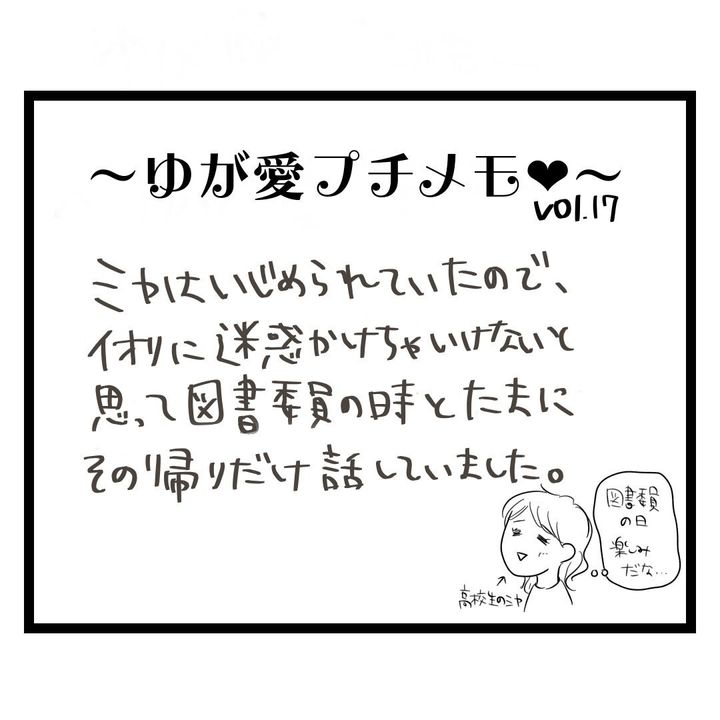 〜ゆが愛プチメモ❤〜
vol.17
ミヤはいじめられていたので、
イオリに迷惑かけちゃいけないと
思って図書委員の時とたまに
その帰りだけ話していました。
図書委員
の日
楽しみ
だな…
高校生のミヤ